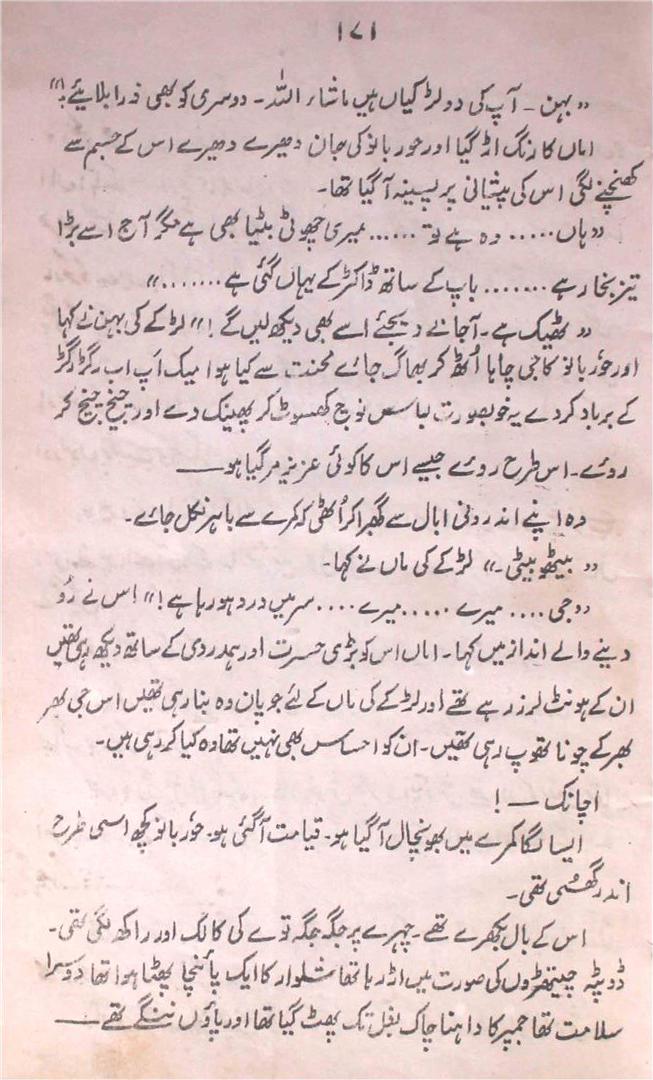 ۱۷۱
”بہن ۔ آپ کی دو لڑکیاں ہیں ماشاء اللہ ۔ دوسری کو بھی ذرا بلایئے!“
اماں کا رنگ اڑ گیا اور حور بانو کی جان دھیرے دھیرے اس کے جسم سے
کھنچنے لگی اس کی پیشانی پر پسینہ آگیا تھا۔
”ہاں ..... وہ ہے تو ...... میری چھوٹی بٹیا بھی ہے مگر آج اسے بڑا
تیز بخار ہے ....... باپ کے ساتھ ڈاکٹر کے یہاں گئی ہے .......“
”ٹھیک ہے ۔ آجانے دیجئے اسے بھی دیکھ لیں گے !“ لڑکے کی بہن نے کہا
اور حور بانو کا جی چاہا اُٹھ کر بھاگ جائے محنت سے کیا ہوا میک اَپ اب رگڑ رگڑ
کے برباد کر دے یہ خوبصورت لباس نوچ کھسوٹ کر پھینک دے اور چیخ چیخ کر
روئے ۔ اس طرح روئے جیسے اس کا کوئی عزیز مر گیا ہو ——
وہ اپنے اندرونی ابال سے گھبرا کر اُٹھی کہ کمرے سے باہر نکل جائے ۔
”بیٹھو بیٹی ۔“ لڑکے کی ماں نے کہا۔
”جی .... میرے ..... میرے .... سر میں درد ہو رہا ہے !“ اس نے رُو
دینے والے انداز میں کہا ۔ اماں اس کو بڑی حسرت اور ہمدردی کے ساتھ دیکھ رہی تھیں
ان کے ہونٹ لرز رہے تھے اور لڑکے کی ماں کے لئے جو پان وہ بنا رہی تھیں اس جی بھر
بھر کے چونا تھوپ رہی تھیں ۔ ان کو احساس بھی نہیں تھا وہ کیا کر رہی ہیں ۔
اچانک — !
ایسا لگا کمرے میں بھونچال آگیا ہو ۔ قیامت آگئی ہو ۔ حور بانو کچھ اسی طرح
اندر گھسی تھی ۔
اس کے بال بکھرے تھے ۔ چہرے پر جگہ جگہ توے کی کالک اور راکھ لگی تھی ۔
ڈوپٹہ چیتھڑوں کی صورت میں اڑ رہا تھا شلوار کا ایک پائنچا پھٹا ہوا تھا دوسرا
سلامت تھا جمپر کا داہنا چاک بغل تک پھٹ گیا تھا اور پاؤں ننگے تھے ——